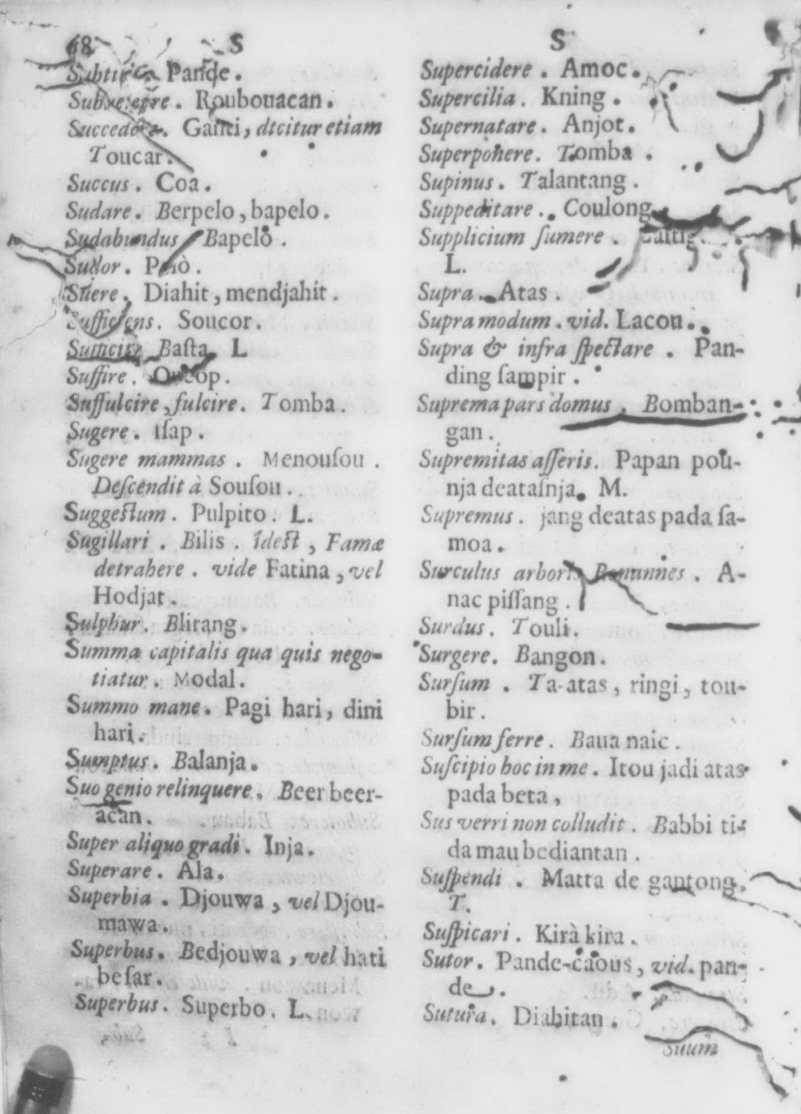 68 S
Pande.
Roubouacan.
Ganti, dicitur etiam
Toucar.
Succus. Coa.
Sudare. Berpelo, bapelo.
Sudabundus. Bapelò.
Sudor. Pelò.
Suere. Diahit, mendjahit.
Sufficiens. Soucor.
Baſta. L
Suffire.
Suffulcire, fulcire. Tomba.
Sugere. Iſap.
Sugere mammas. Menouſou.
Deſcendit à Souſou.
Suggeſtum. Pulpito. L.
Sugillari. Bilis. ideſt, Famæ
detrahere. vide Fatina, vel
Hodjat.
Sulphur. Blirang.
Summa capitalis qua quis nego-
tiatur. Modal.
Summo mane. Pagi hari, dini
hari.
Sumptus. Balanja.
Suo genio relinquere. Beer beer-
acan.
Super aliquo gradi. Inja.
Superare. Ala.
Superbia. Djouwa, vel Djou-
mawa.
Superbus. Bedjouwa, vel hati
beſar.
Superbus. Superbo. L.
S
Supercidere. Amoc.
Supercilia. Kning.
Supernatare. Anjot.
Superponere. Tomba.
Supinus. Talantang.
Suppeditare. Coulong.
Supplicium ſumere.
L.
Supra. Atas.
Supra modum. vid. Lacou.
Supra & infra ſpectare. Pan-
ding ſampir.
Suprema pars domus. Bomban-
gan.
Supremitas aſſeris. Papan pou-
nja deataſnja. M.
Supremus. jang deatas pada ſa-
moa.
Surculus arboris Banannes. A-
nac piſſang.
Surdus. Touli.
Surgere. Bangon.
Surſum. Ta-atas, ringi, tou-
bir.
Surſum ferre. Baua naic.
Suſcipio hoc in me. Itou jadi atas
pada beta,
Sus verri non colludit. Babbi ti-
da mau bediantan.
Suſpendi. Matta de gantong.
T.
Suſpicari. Kirà kira.
Sutor. Pande-caous, vid. pan-
de.
Sutura. Diahitan.
Suum